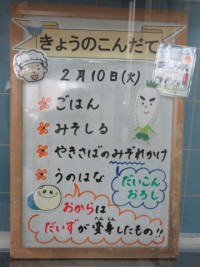 きょうのこんだて
2月10日(火)
ごはん
みそしる
やきさばのみぞれかけ
だいこん
おろし
うのはな
おからは
だいずが変身したもの!!